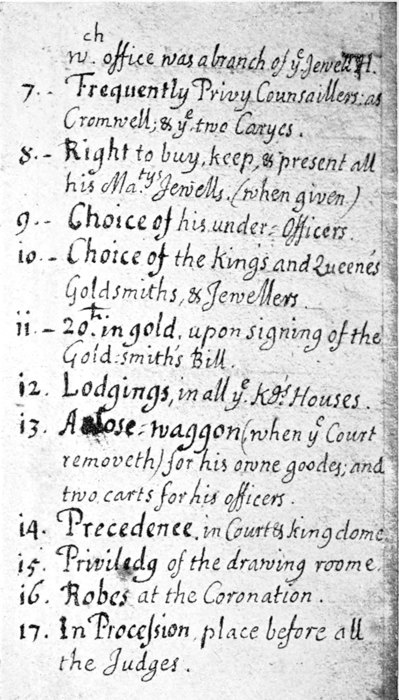 wch. office was a branch of ye. Jewell H.
7. - Frequently Privy Counsaillers: as
Cromwell; & ye. two Caryes.
8. - Right to buy, keep, & present all
his Ma:tys Jewells. (when given.)
9 - Choice of his under-Officers.
10. - Choice of the Kings and Queenes
Goldsmiths, & Jewellers
11. - 20th. in gold, upon signing of the
Gold-smith's Bill.
12. Lodgings, in all ye. Kgs. Houses.
13. A close-waggon (when ye. Court
removeth) for his owne goodes; and
two carts for his officers.
14. Precedence, in Court & kingdome
15. Priviledg of the drawing roome.
16. Robes at the Coronation.
17. In Procession, place before all
the Judges.